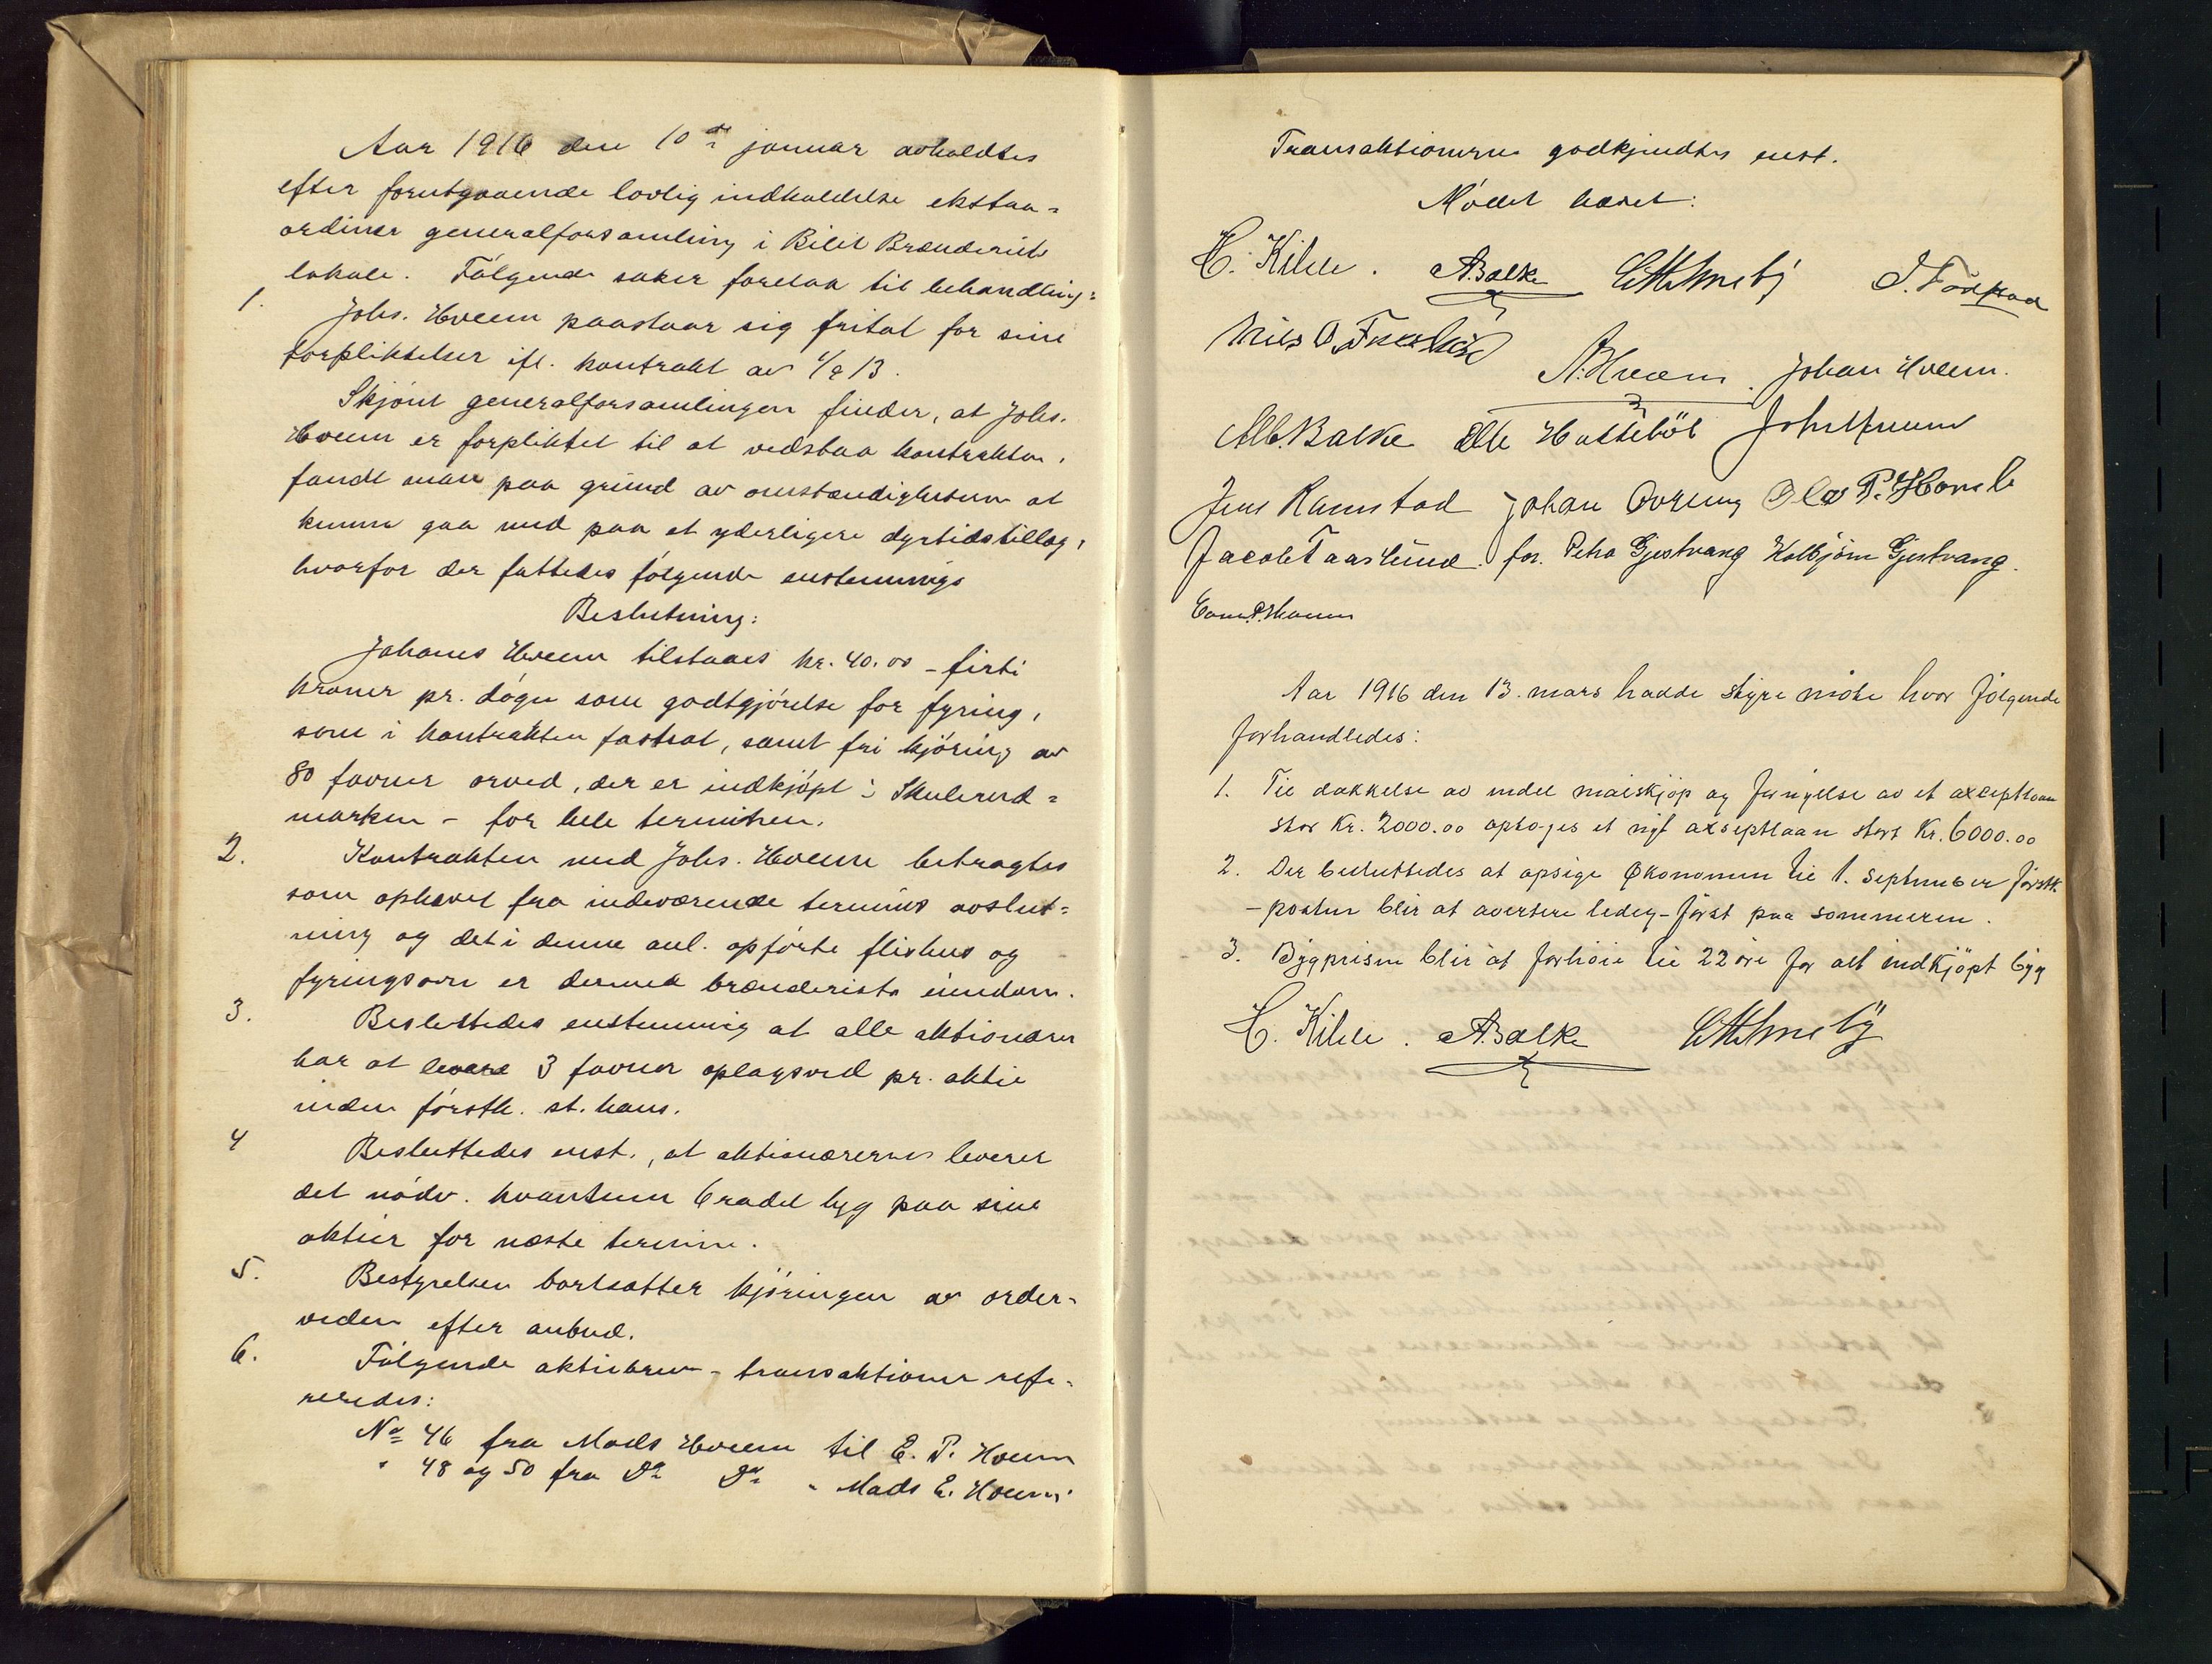 Aar 1916 den 10de januar avholdtes
efter forutgaaende lovlig indkaldelse ekstra=
ordinær generalforsamling i Bilit Brænderiets
lokale. Følgende saker forelaa til behandling:
1. Johs. Hveem paastaar sig fritat for sine
forpliktelser ifl. kontrakt av 1/9 13.
Skjønt generalforsamlingen finder, at Johs.
Hveem er forpliktet til at vedstaa kontrakten,
fandt man paa grund av omstændigheterne at
kunne gaa med paa et yderligere dyrtidstillæg,
hvorfor der fattedes følgende enstemmige
Beslutning:
Johanes Hveem tilstaaes kr. 40.00 - firti
kroner pr. døgn som godtgjørelse for fyring,
som i kontrakten fastsat, samt fri kjøring av
80 favner orved, der er indkjøpt i Skulerud=
marken - for hele terminen.
2. Kontrakten med Johs. Hveem betragtes
som ophævet fra indeværende termins avslut=
ning og det i denne anl. opførte flishus og
fyringsovn er dermed brænderiets eiendom.
3. Besluttedes enstemmig at alle aktionærer
har at levere 3 favner oplagsved pr. aktie
inden førstk. st. hans.
4 Besluttedes enst., at aktionærerne leverer
det nødv. kvantum 6radet byg paa sine
aktier for næste termin.
5. Bestyrelsen bortsætter kjøringen av order-
veden efter anbud.
6. Følgende aktiebrev-transaktioner refe-
reredes:
No 46 fra Mads Hveem til E. P. Hveem
" 48 og 50 fra Do Do " Mads E. Hveem
Transaktionerne godkjendtes enst.
Møtet hævet:
H. Kihle. A. Balke
A. Hveem. Johan Hveem.
Alb. Balke
Jens Ramstad Johan Ovren Ole P. Hveem
Jacob Taaslund. for. Petra Gjestvang Kolbjørn Gjestvang.
Aar 1916 den 13. mars hadde styre møte hvor følgende
forhandledes:
1. Til dækkelse av endel maiskjøp og fornyelse av et akseptlaan
stor Kr. 2000.00 optoges et nyt akseptlaan stort Kr. 6000.00
2. Der besluttedes at opsige Økonomen til 1. September førstk
- posten blir at avertere ledig - først paa sommeren.
3. Bygprisen blir at forhøie til 22 øre for alt indkjøpt byg
H. Kihle. A. Balke